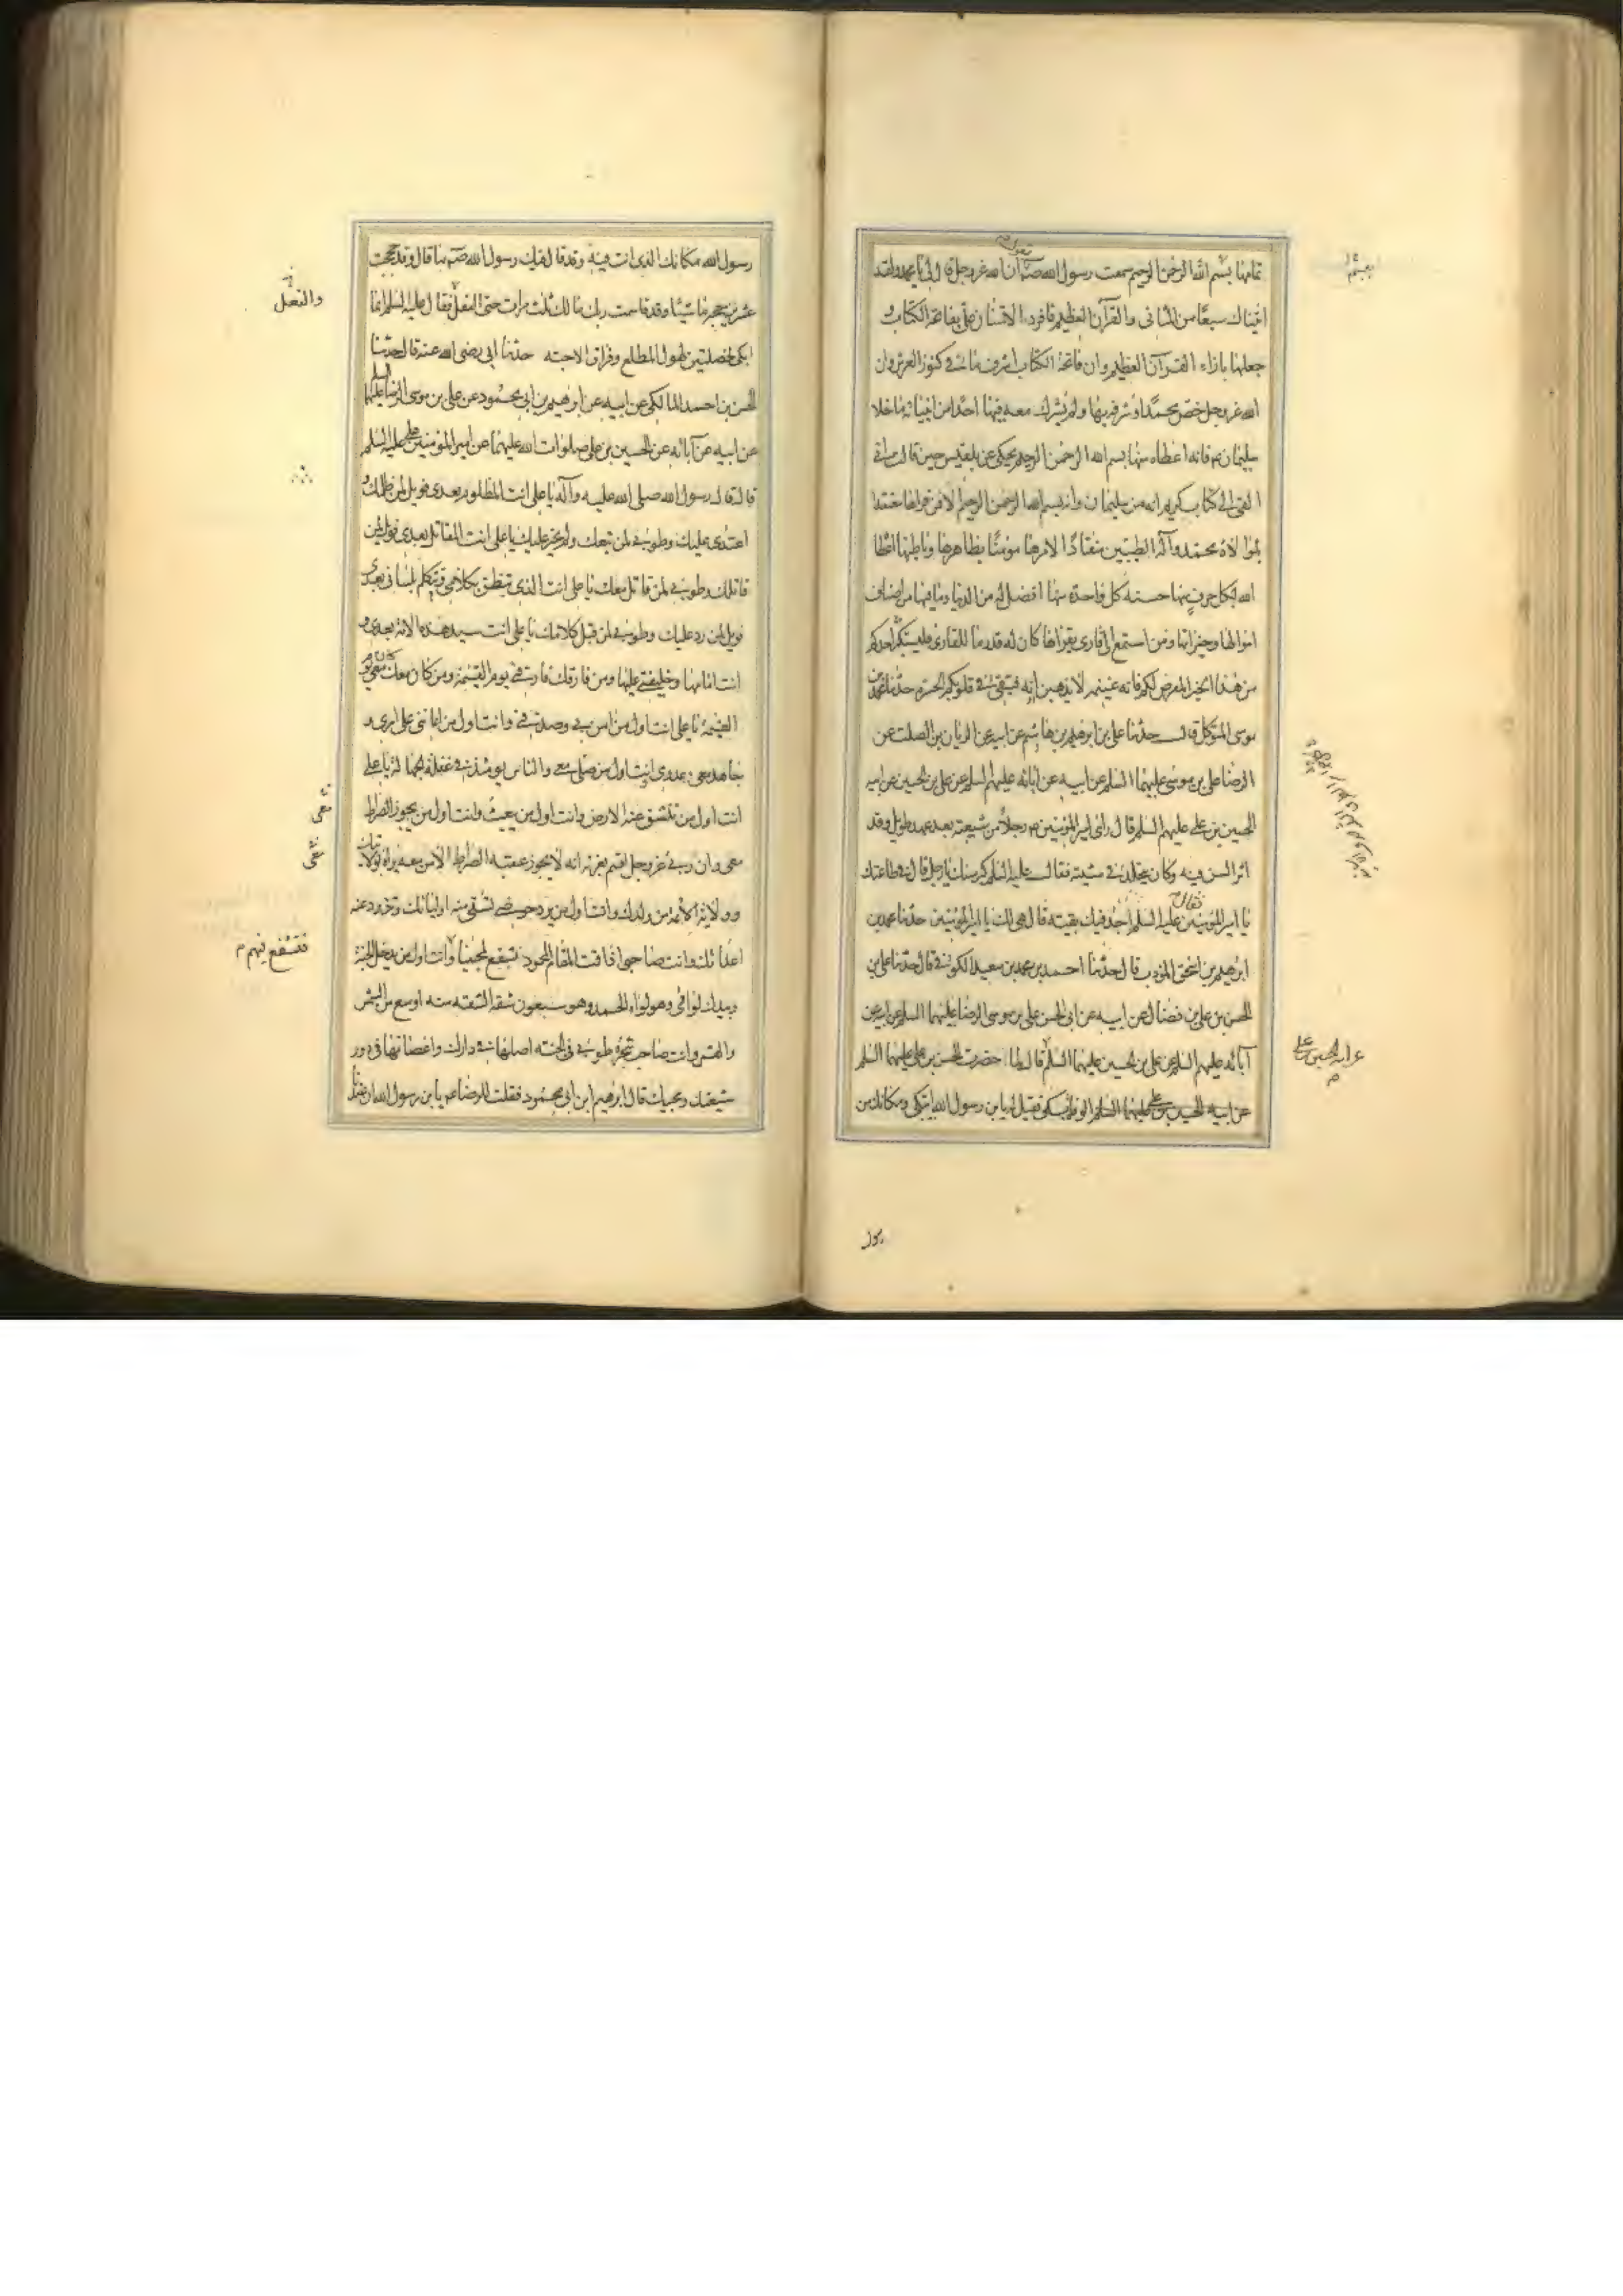 تمامها بسم الله الرحمن الرحيم سمعت رسول الله صم يقول ان الله عز وجل قال لي يا محمد ولقد
اتيناك سبعا من المثاني والقرآن العظيم فافرد الامتنان علي بفاتحة الكتاب و
جعلها بازاء القرآن العظيم وان فاتحة الكتاب اشرف ما في كنوز العرش وان
الله عز وجل خص محمدا وشرفه بها ولم يشرك معه فيها احدا من انبيائه ما خلا
سليمان عم فانه اعطاه منها بسم الله الرحمن الرحيم يحكي عن بلقيس حين قالت اني
القي الي كتاب كريم انه من سليمان وانه بسم الله الرحمن الرحيم الا فمن قراها معتقدا
لموالاة محمد وآله الطيبين منقادا لامرها مؤمنا بظاهرها وباطنها اعطاه
الله بكل حرف منها حسنة كل واحدة منها افضل له من الدنيا وما فيها من اصناف
اموالها وخيراتها ومن استمع الى قاري يقرأها كان له قدر ما للقاري فليستكثر احدكم
من هذا الخير المعرض لكم فانه غنيمة لا يذهبن اوانه فتبقى في قلوبكم الحسرة حدثنا محمد بن
موسى المتوكل قال حدثنا علي بن ابرهيم بن هاشم عن ابيه عن الريان بن الصلت عن
الرضا علي بن موسى عليهما السلم عن ابيه عن آبائه عليهم السلم عن علي بن الحسين عن ابيه
الحسين بن علي عليهم السلم قال راى امير المؤمنين عم رجلا من شيعته بعد عهد طويل وقد
اثر السن فيه وكان يتجلد في مشيته فقال عليه السلم كبر سنك يا رجل قال في طاعتك
يا امير المؤمنين فقال عليه السلم اجد فيك بقية قال هي لك يا امير المؤمنين حدثنا محمد بن
ابرهيم بن اسحق المؤدب قال حدثنا احمد بن محمد بن سعيد الكوفي قال حدثنا علي بن
الحسن بن علي بن فضال عن ابيه عن ابي الحسن علي بن موسى الرضا عليهما السلم عن ابيه عن
آبائه عليهم السلم عن علي بن الحسين عليهما السلم قال لما حضرت الحسن بن علي عليهما السلم
عن ابيه الحسين بن علي عليهما السلم الوفاة بكى فقيل له يا بن رسول الله اتبكي ومكانك من
عن ابيه الحسين بن علي م
رسول
رسول الله مكانك الذي انت فيه وقد قال فيك رسول الله صم ما قال وقد حججت
عشرين حجة ماشيا وقد قاسمت ربك مالك ثلث مرات حتى النعل فقال عليه السلم انما
والنعل
ابكي لخصلتين لهول المطلع وفراق الاحبة حدثنا ابي رضي الله عنه قال حدثنا
الحسن بن احمد المالكي عن ابيه عن ابرهيم بن ابي محمود عن علي بن موسى الرضا عليهما السلم
عن ابيه عن آبائه عن الحسين بن علي صلوات الله عليهما عن امير المؤمنين علي عليه السلم
قال قال رسول الله صلى الله عليه وآله يا علي انت المظلوم بعدي فويل لمن ظلمك و
اعتدى عليك وطوبى لمن تبعك ولم يختر عليك يا علي انت المقاتل بعدي فويل لمن
قاتلك وطوبى لمن قاتل معك يا علي انت الذي تنطق بكلامي وتتكلم بلساني بعدي
فويل لمن رد عليك وطوبى لمن قبل كلامك يا علي انت سيد هذه الامة بعدي و
انت امامها وخليفتي عليها ومن فارقك فارقني يوم القيمة ومن كان معك كان معي يوم
القيمة يا علي انت اول من آمن بي وصدقني وانت اول من اعانني على امري و
جاهد معي عدوي وانت اول من صلى معي والناس يومئذ في غفلة الجهالة يا علي
انت اول من تنشق عنه الارض وانت اول من يبعث وانت اول من يجوز الصراط
معي وان ربي عز وجل اقسم بعزته انه لا يجوز عقبة الصراط الا من معه براة بولايتك
وولاية الائمة من ولدك وانت اول من يرد حوضي تسقي منه اوليائك وتذود عنه
اعدائك وانت صاحبي اذا قمت المقام المحمود تشفع لمحبينا وانت اول من يدخل الجنة
فتشفع فيهم م
وبيدك لوائي وهو لواء الحمد وهو سبعون شقة الشقة منه اوسع من الشمس
والقمر وانت صاحب شجرة طوبى في الجنة اصلها في دارك واغصانها في دور
شيعتك ومحبيك قال ابرهيم ابن ابي محمود فقلت للرضا عم يا بن رسول الله ان عندنا